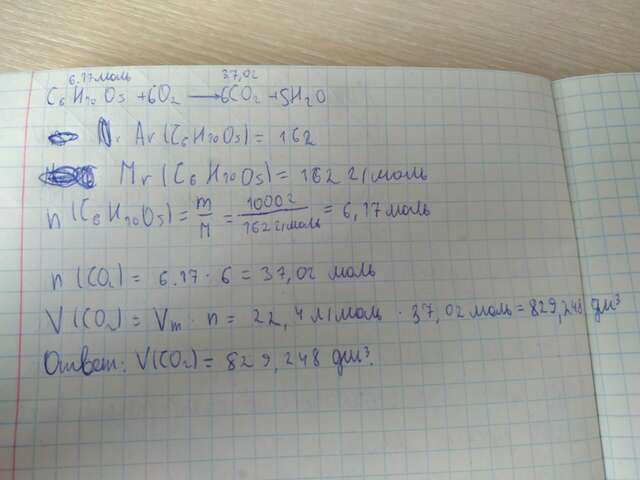 6.17 моль 37,02
C6H10O5 +6O2 → 6CO2 +5H2O
Ar(C6H10O5) = 162
Mr(C6H10O5) = 162 г/моль
n(C6H10O5) = m/M = 1000г/162г/моль = 6,17 моль
n(CO2) = 6.17 · 6 = 37,02 моль
V(CO2) = Vm · n = 22,4 л/моль · 37,02 моль = 829,248 дм³
Ответ: V(CO2) = 829,248 дм³.